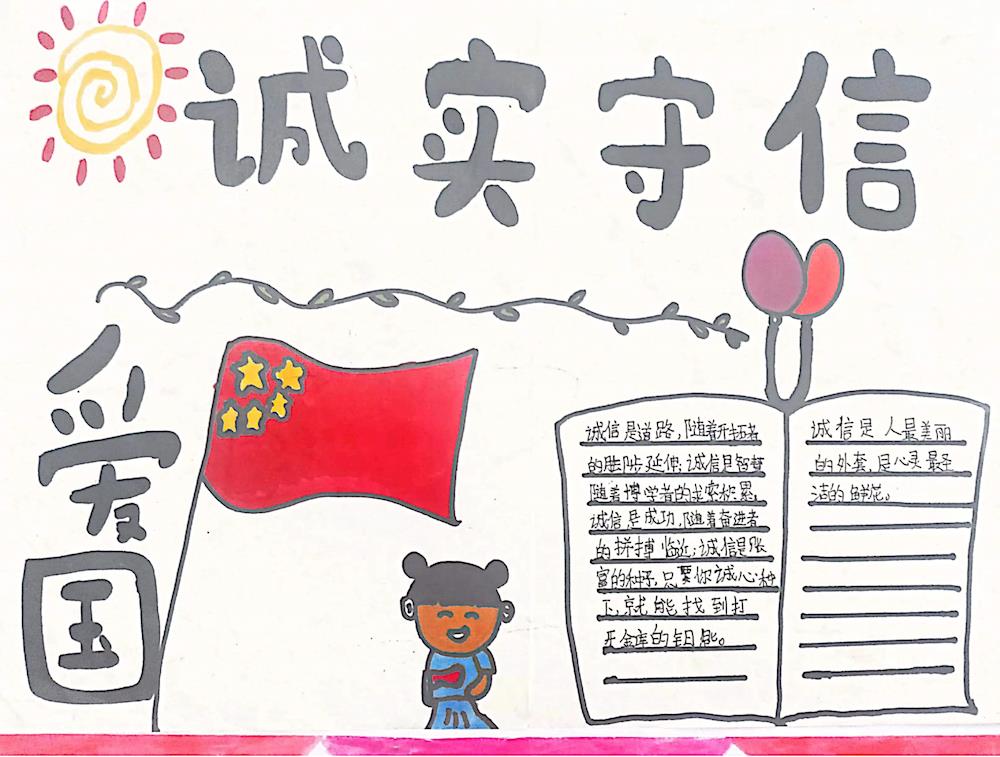 诚实守信
爱国
诚信是道路，随着开拓者
的脚步延伸；诚信是智慧
随着博学者的求索积累，
诚信是成功，随着奋进者
的拼搏临近；诚信是财
富的种子，只要你诚心种
下，就能找到打
开金库的钥匙。
诚信是人最美丽
的外套，是心灵最圣
洁的鲜花。